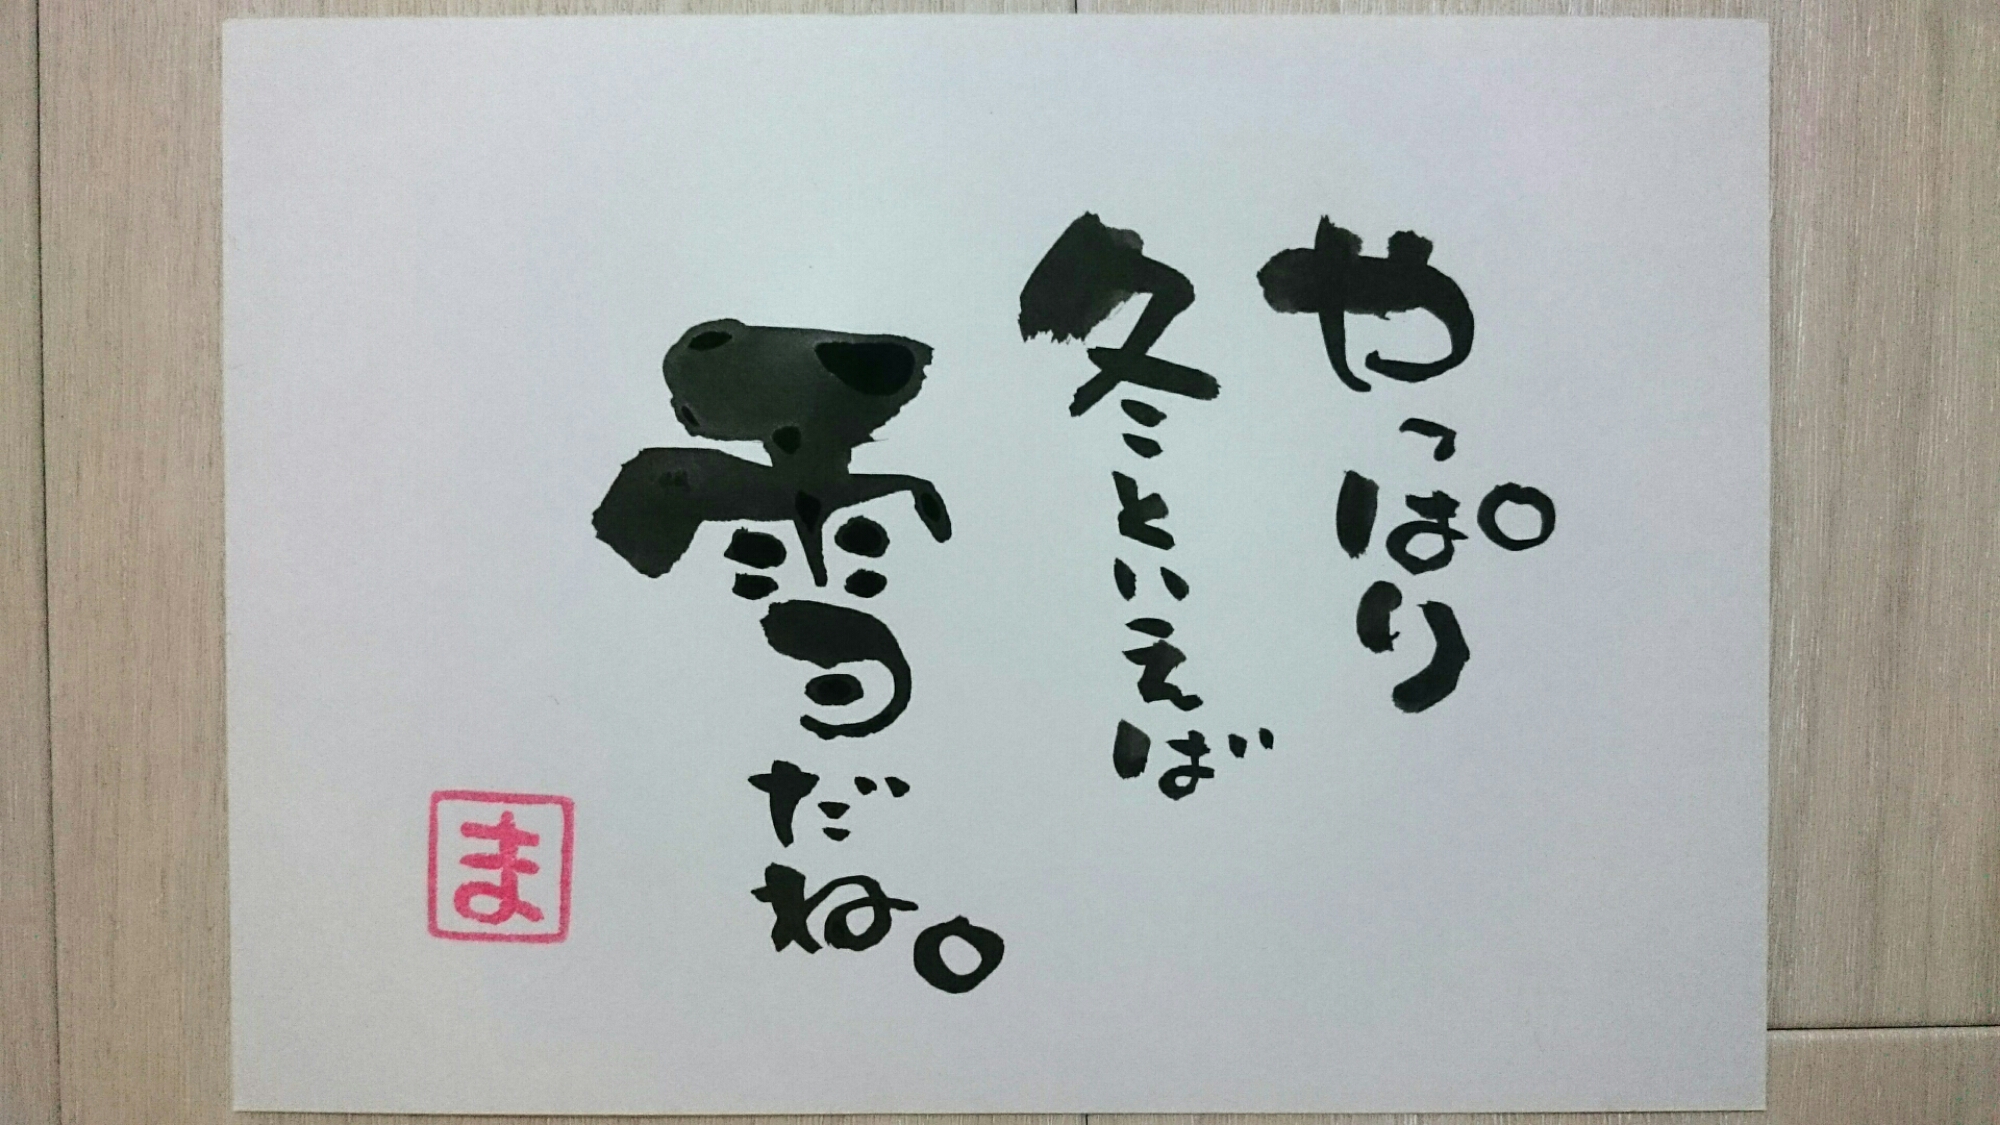 やっぱり
冬といえば
雪だね。
ま